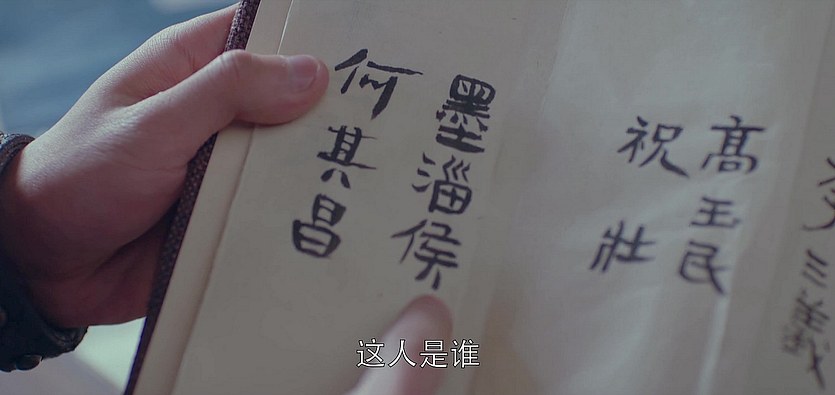 高玉民
祝壯
墨淄侯
何其昌
这人是谁